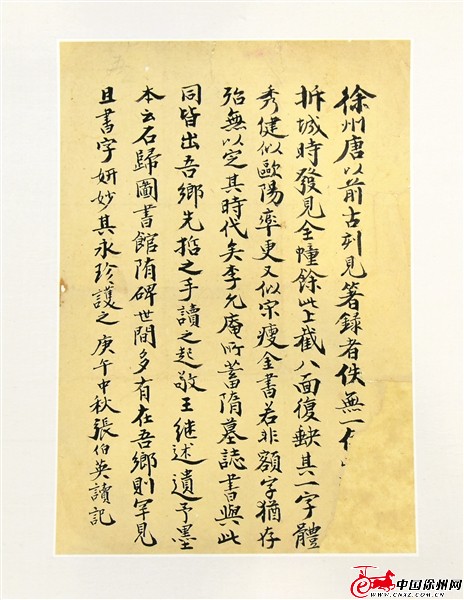 徐州唐以前古刻見箸錄者佚無一存
拆城時發見全幢餘此上截八面復缺其一字體
秀健似歐陽率更又似宋瘦金書若非額字猶存
殆無以定其時代矣李允庵所蓄隋墓誌書與此
同皆出吾鄉先哲之手讀之起敬王繼述遺予墨
本云石歸圖書館隋碑世間多有在吾鄉則罕見
且書字妍妙其永珍護之庚午中秋張伯英讀記
中国徐州网
WWW.CNXZ.COM.CN